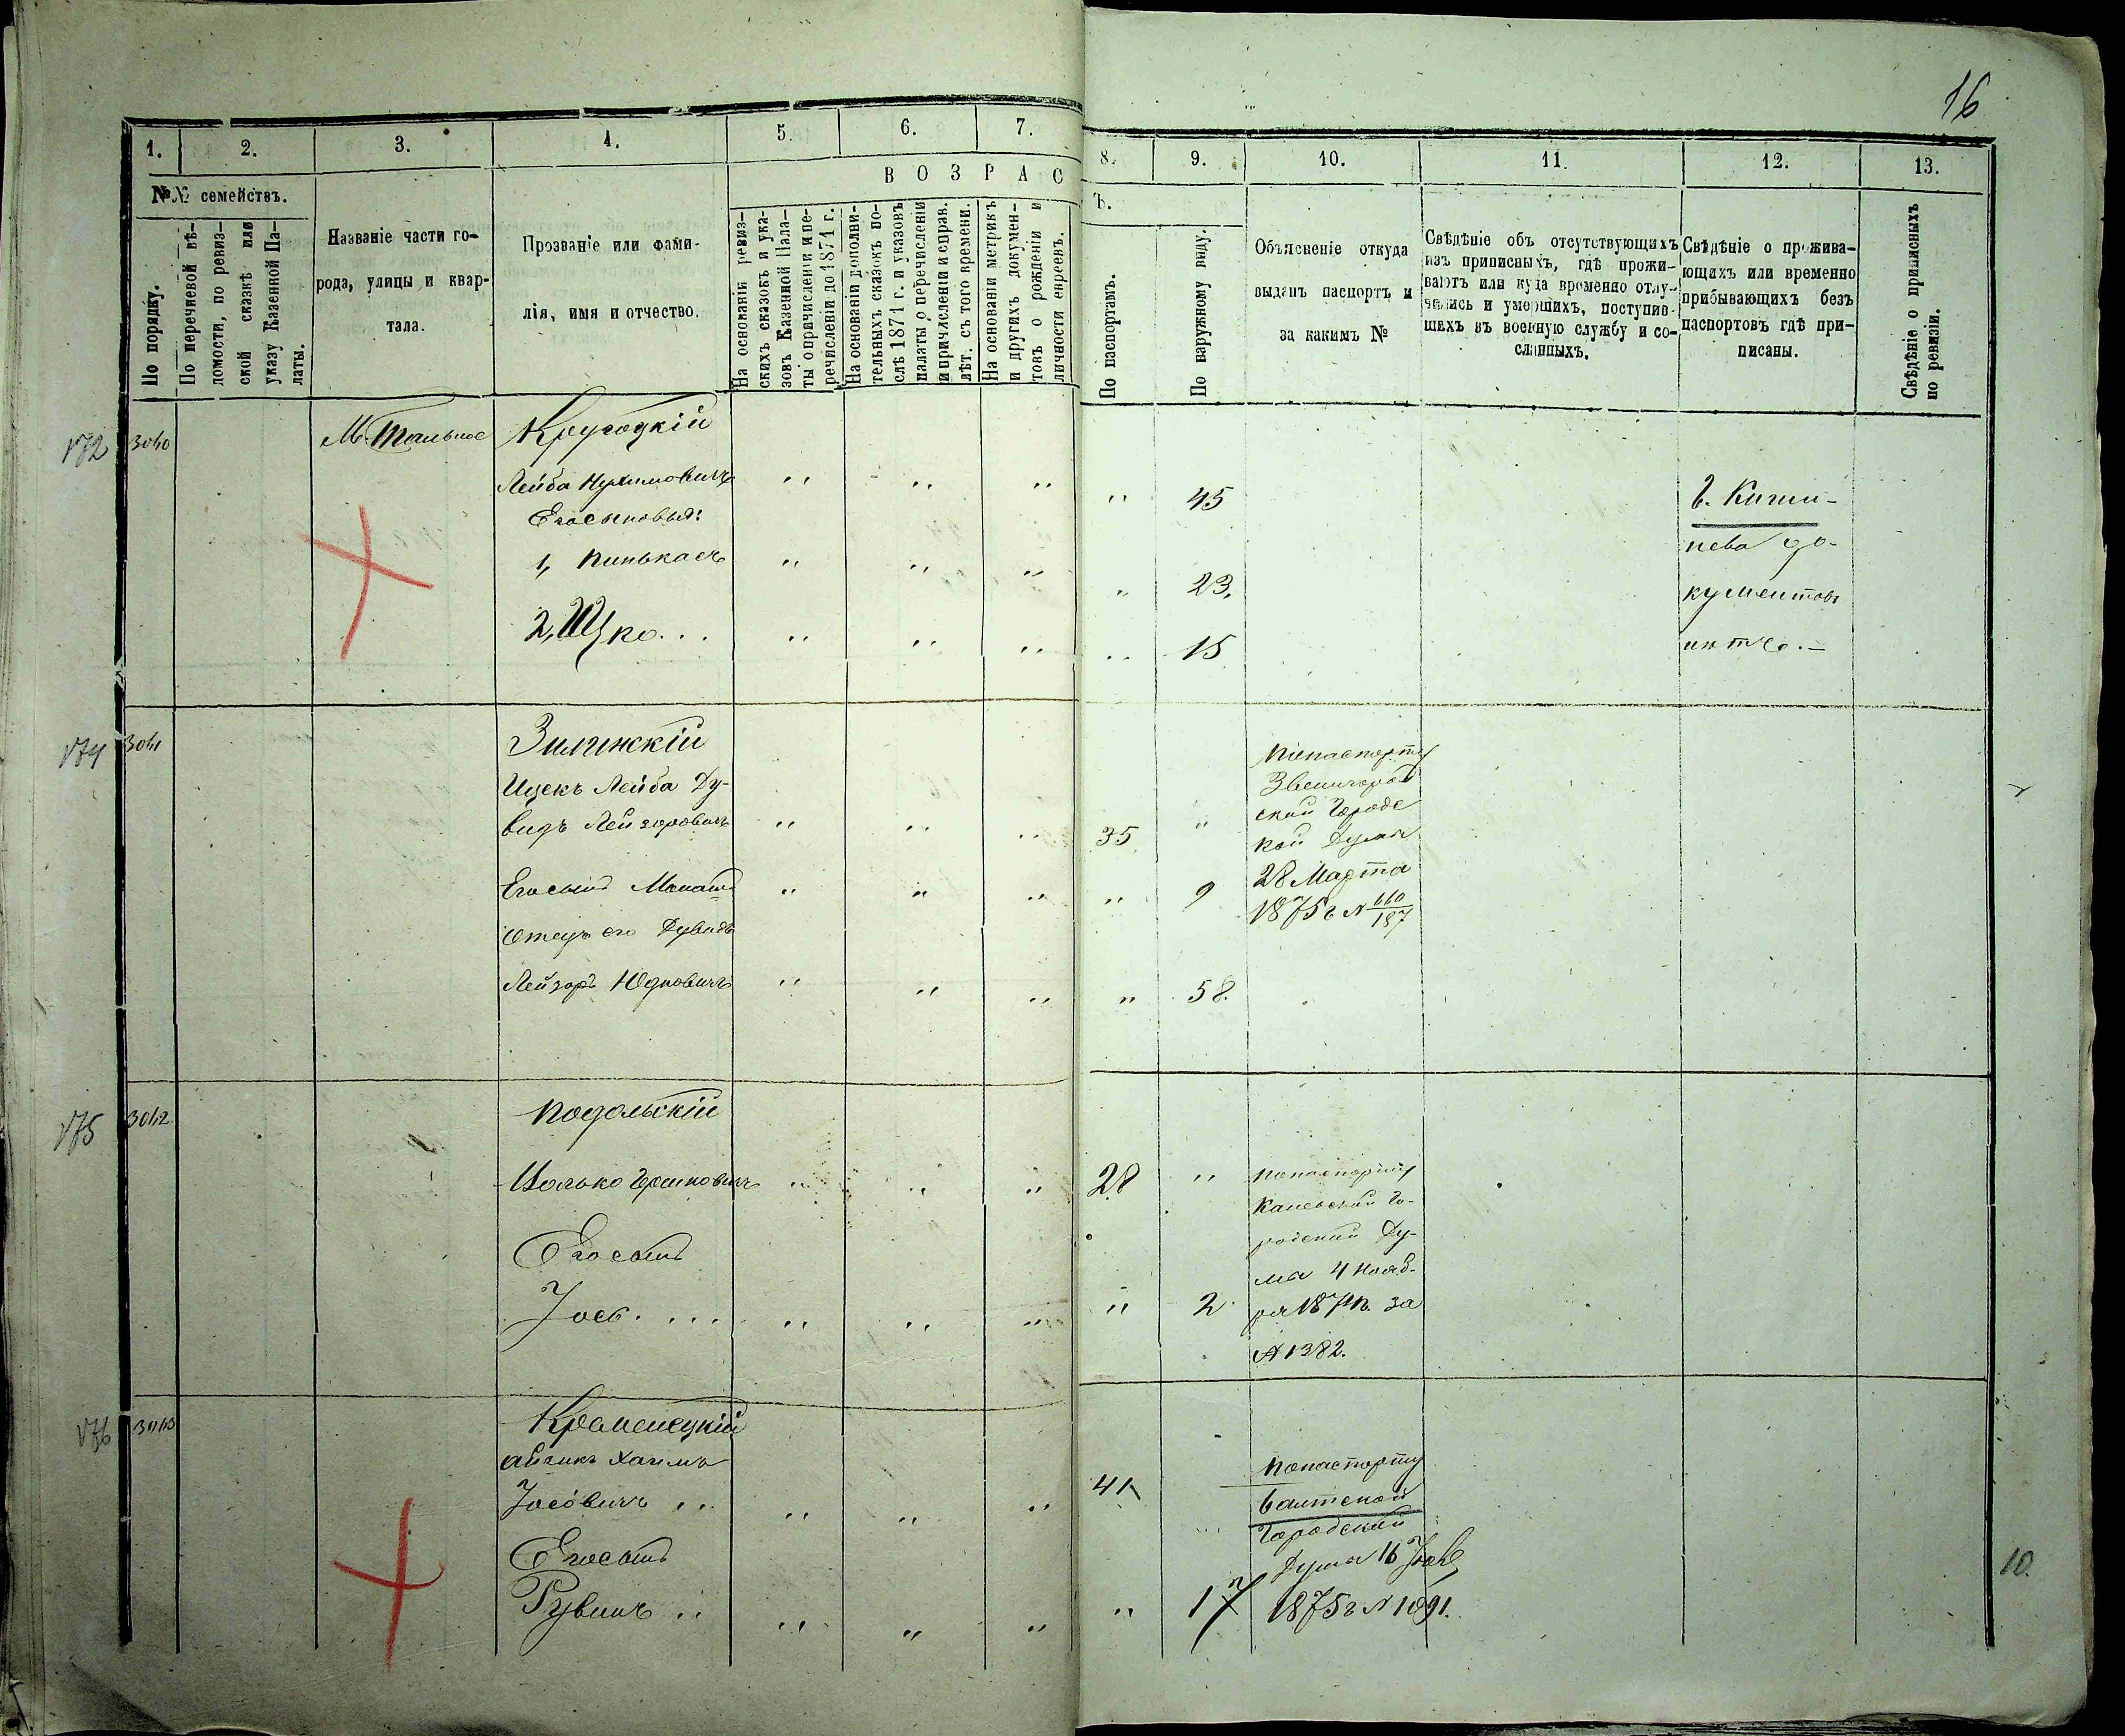 16
1. 2. 3. 4. 5. 6. 7. 8. 9. 10. 11. 12. 13.
№№ семействъ.
В О З Р А С
Ъ.
По порядку.
По перечневой вѣ-
домости, по ревиз-
ской сказкѣ или
указу Казенной Па-
латы.
Названіе части го-
рода, улицы и квар-
тала.
Прозваніе или фами-
лія, имя и отчество.
На основаніи ревиз-
скихъ сказокъ и ука-
зовъ Казенной Пала-
ты о причисленіи и пе-
речисленіи до 1871 г.
На основаніи дополни-
тельныхъ сказокъ по-
слѣ 1871 г. и указовъ
палаты о перечисленіи
и причисленіи и справ.
лѣт. съ того времени.
На основаніи метрикъ
и другихъ докумен-
товъ о рожденіи и
личности евреевъ.
По паспортамъ.
По наружному виду.
Объясненіе откуда
выданъ паспортъ и
за какимъ №
Свѣдѣніе объ отсутствующихъ
изъ приписныхъ, гдѣ прожи-
ваютъ или куда временно отлу-
чились и умершихъ, поступив-
шихъ въ военную службу и со-
сланныхъ.
Свѣдѣніе о прожива-
ющихъ или временно
прибывающихъ безъ
паспортовъ гдѣ при-
писаны.
Свѣдѣніе о приписныхъ
по ревизіи.
172 3040 М. Тальное
Лейба Нухимовичъ " " " " 45
Его сыновья:
1, Пинькасъ " " " " 23.
2, Шко... " " " " 15
г. Киши-
нева до-
кументовъ
нѣтъ.
174 3041
Ицекъ Лейба Ду-
видъ Лейзоровичъ " " " 35 "
Его сынъ " " " " 9
Отецъ его Дувидъ
Лейзоръ Юдковичъ " " " " 58.
по паспорту
Звенигород
ской Городс
кой Думы
28 Марта
1875 г. № 660/187
175 3042 Подольскій
Іосько Гершковичъ " " " 28 "
Его сынъ
Іось.... " " " " 2
по паспорту
Каневской Го-
родской Ду-
мы 4 Нояб-
ря 1874 г. за
№ 1382.
176 3043 Кременецкій
Хаимъ
Іосёвичъ " " " " 41
Его сынъ
Рувинъ " " " " " 17
по паспорту
Балтской
Городской
Думы 16
1875 г. № 1091.
10.